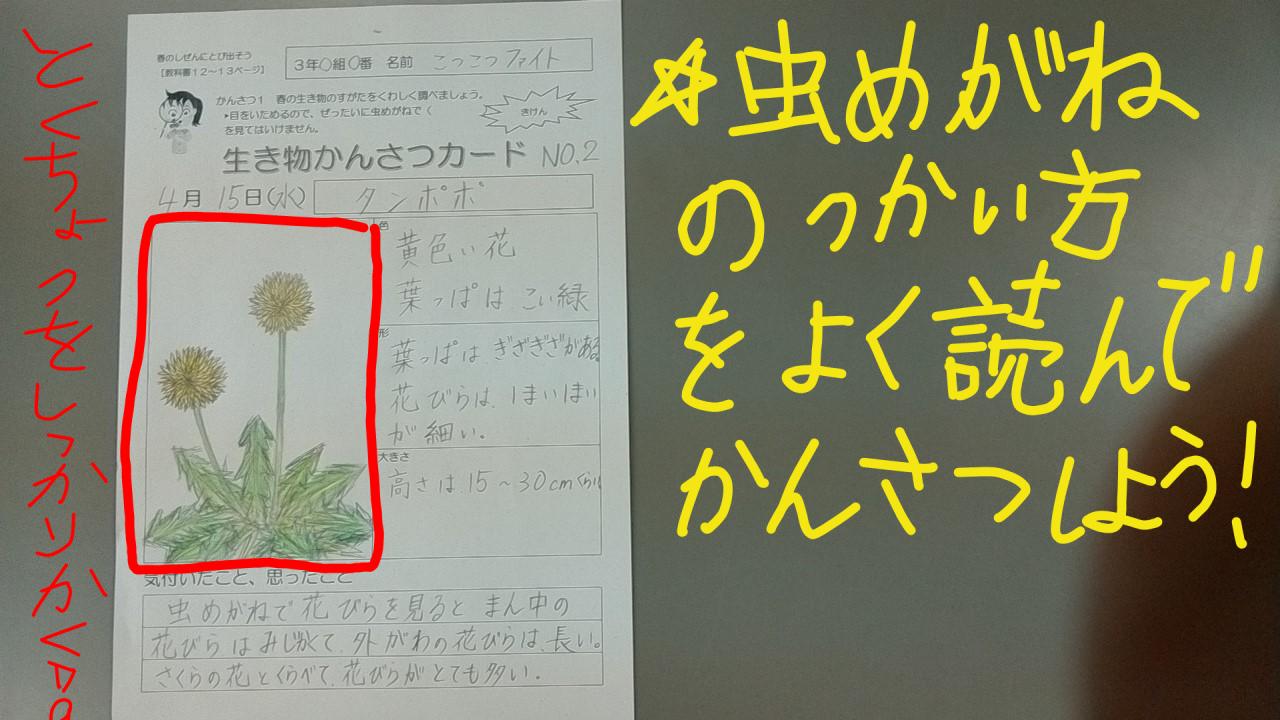 とくちょうをしっかりかく
春のしぜんにとび出そう
【教科書12~13ページ】
3年○組○番 名前 こつこつファイト
かんさつ1 春の生き物のすがたをくわしく調べましょう。
▸目をいためるので、ぜったいに虫めがねで(
を見てはいけません。
きけん
生き物かんさつカード NO.2
4月 15日(水) タンポポ
色
黄色い花
葉っぱは こい緑
形
葉っぱは、ぎざぎざがある
花びらは、1まい1まい
が細い。
大きさ
高さは、15~30cmくらい
気付いたこと、思ったこと
虫めがねで花びらを見るとまん中の
花びらはみじかくて、外がわの花びらは、長い。
さくらの花とくらべて、花びらがとても多い。
☆虫めがね
のつかい方
をよく読んで
かんさつしよう!